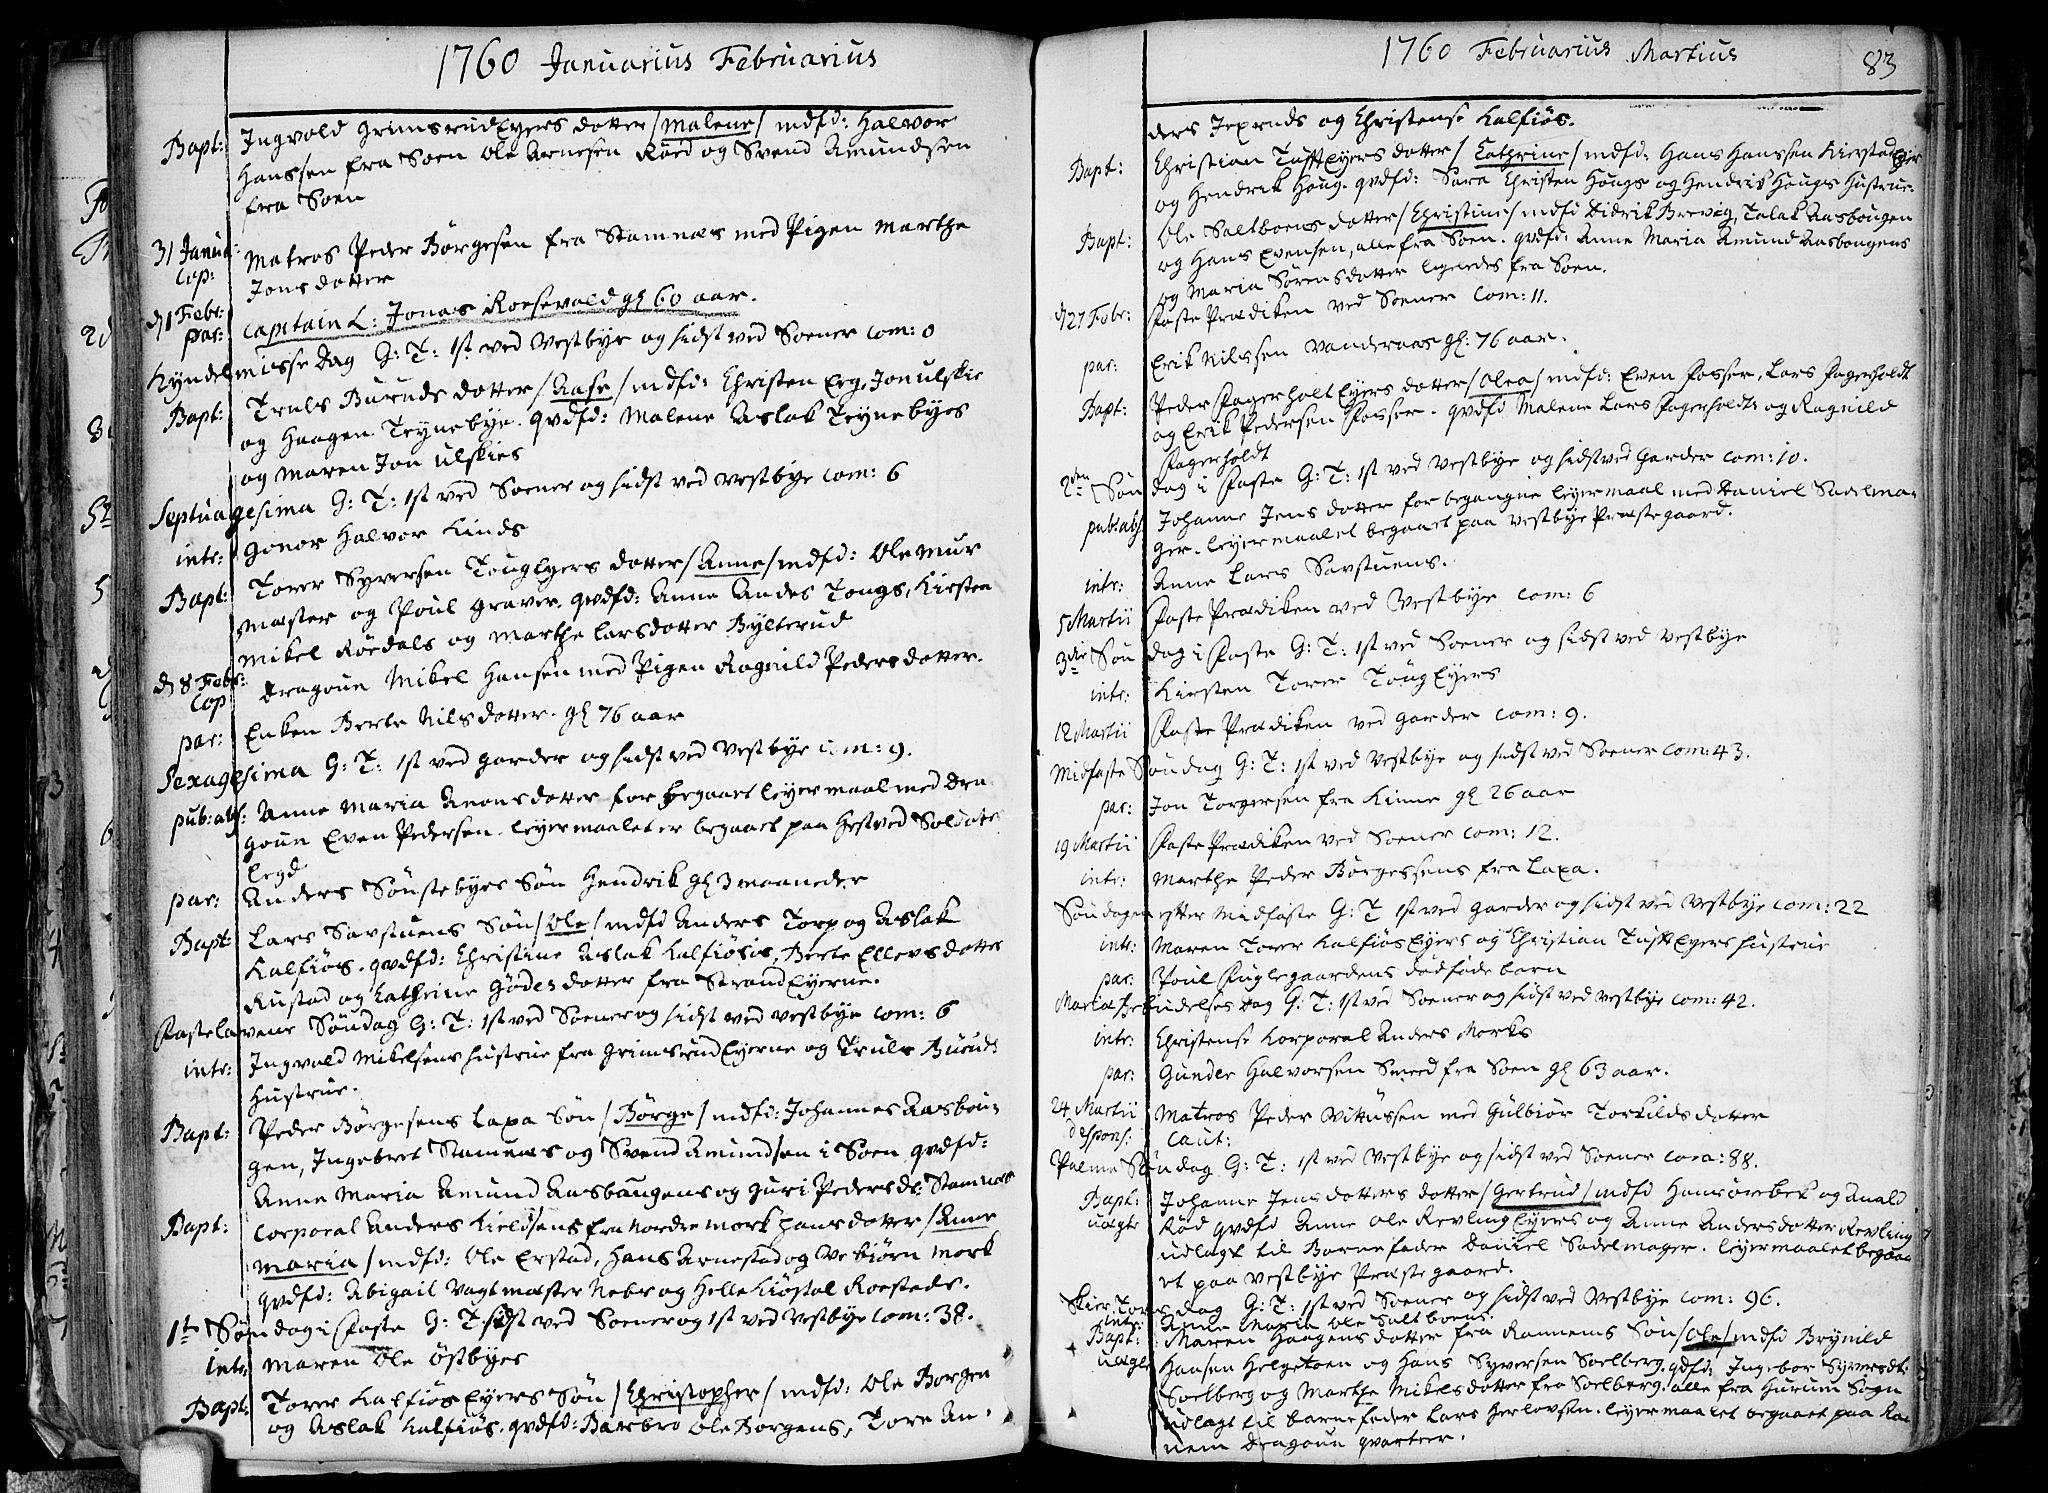 1760 Januarius Februarius
Bapt: Ingvold Grimsrudeyers dotter /Malene/ mdfd: Halvor
Hanssen fra Soen Ole Arnesen Röed og Svend Amundsen
fra Soen
31 Januar: Matros Peder Börgesen fra Stamnæs med Pigen Marthe
Cop: Jonsdotter
d 1 Febr:
par: Capitain L: Jonas Roesevold gl 60 aar.
Kyndelmisse Dag G: T: 1st ved Vestbye og sidst ved Soener Com: 0
Bapt: Truls Buruds dotter /Aase/ mdfd: Christen Erg, Jon Ulskie
og Haagen Teynebye. qvdfd: Malene Aslak Teynebyes
og Maren Jon Ulskies
Septuagesima G: T: 1st ved Soener og sidst ved Vestbye Com: 6
intr: Gonor Halvor Kinds
Bapt: Torer Syversen Tougeyers dotter /Anne/ mdfd: Ole Mur
Mæster og Poul Graver. qvdfd: Anne Andes Tougs, Kirsten
Mikel Röedals og Marthe Larsdotter Bylterud
d 8 Febr: Dragoun Mikel Hansen med Pigen Ragnild Pedersdotter.
Cop
par: Enken Berte Nilsdotter. gl 76 aar
Sexagesima G: T: 1st ved Garder og sidst ved Vestbye Com: 9.
pub: abs: Anne Maria Aronsdotter for begaaet leyermaal med Dra
goun Even Pedersen. leyermaalet er begaaet paa Hestved Soldate
legd
par: Anders Sönstebyes Sön Hendrik gl 3 maaneder
Bapt: Lars Savstuens Sön /Ole/ mdfd Anders Torp og Aslak
Kalfiös. qvdfd: Christine Aslak Kalfiöses, Berte Ellevsdotter
Rustad og Cathrine Gödesdotter fra Strandeyerne.
Fastelavens Söndag G: T: 1st ved Soener og sidst ved Vestbye Com: 6
intr: Ingvold Mikelsens hustrue fra Grimsrudeyerne og Truls Buruds
Hustrue.
Bapt: Peder Börgesens Laxa Sön /Börge/ mdfd: Johannes Aasbou-
gen, Ingebret Stamnæs og Svend Amundsen i Soen qvdfd:
Anne Maria Amund Aasbaugens og Guri Pedersdr: Stamnæs
Bapt: Corporal Anders Kieldsens fra Nordre Mork hans dotter /Anne
Maria/ mdfd: Ole Erstad, Hans Arnestad og Vebiörn Mork
qvdfd: Abigail Vagtmæster Nebs og Helle Kiöstol Roestads.
1te Söndag i Faste G: T sidst ved Soener og 1st ved Vestbye Com: 38.
intr Maren Ole Östbyes
Bapt: Torer Kalfiöseyers Sön /Christopher/ mdfd: Ole Borgen
og Aslak Kalfiös. qvdfd: Barbro Ole Borgens, Tore An-
1760 Februarius Martius 83
ders Texruds og Christense Kalfiös.
Bapt: Christian Tufteyers dotter /Cathrine/ mdfd: Hans Hanssen Kierstadeyer
og Hendrik Houg. qvdfd: Sara Christen Hougs og Hendrik Hougs Hustrue.
Bapt: Ole Saltboens dotter /Christine/ mdfd Didrik Brevig, Talak Aasbougen
og Hans Evensen, alle fra Soen. qvdfd: Anne Maria Amund Aasbougens
og Maria Sörensdotter ligeledes fra Soen.
d 27 Febr: Faste Prædiken ved Soener Com: 11.
par: Erik Nilssen Vanderaas gl: 76 aar.
Bapt: Peder Fagerholteyers dotter /Olea/ mdfd: Even Fosser, Lars Fagerholdt
og Erik Pedersen Fosser. qvdfd Malene Lars Fagerholdts og Ragnild
Fagerholdt
2den Söndag i Faste G: T: 1st ved Vestbye og sidst ved Garder Com: 10.
pub: abs Johanne Jensdotter for begangne leyermaal med Daniel Sadelma-
ger. leyermaalet begaaet paa Vestbye Præstegaard.
intr: Anne Lars Savstuens.
5 Martii Faste Prædiken ved Vestbye Com: 6
3die Söndag i Faste G: T: 1st ved Soener og sidst ved Vestbye
intr: Kirsten Torer Tougeyers
12 Martii Faste Prædiken ved Garder Com: 9.
Midfaste Söndag G: T: 1st ved Vestbye og sidst ved Soener Com: 43.
par: Jon Torgersen fra Kinne gl 26 aar
19 Martii Faste Prædiken ved Soener Com: 12.
intr: Marthe Peder Börgessens fra Laxa.
Söndagen efter Midfaste G: T 1st ved Garder og sidst ved Vestbye Com: 22
intr: Maren Torer Kalfiöseyers og Christian Tufteyers hustrue
par: Poul Fuglegaardens dödföde barn
Mariæ Bebudelses Dag G: T: 1st ved Soener og sidst ved Vestbye Com: 42.
intr: Christense Corporal Anders Morks
par: Gunder Halvorsen Smed fra Soen gl 63 aar.
24 Martii Matros Peder Vittussen med Gulbiör Torkildsdotter
despons: Caut:
Palme Söndag G: T: 1st ved Vestbye og sidst ved Soener Com: 88.
Bapt: Johanne Jensdotters dotter /Gertrud/ mdfd Hans Örebek og Anald
uægte Röd qvdfd Anne Ole Revlingeyers og Anne Andersdotter Revling
udlagt til Barnefader Daniel Sadelmager. leyermaalet begaa
et paa Vestbye Præstegaard.
Skier Torsdag G: T: 1st ved Soener og sidst ved Vestbye Com: 96.
intr: Anne Maria Ole Saltboens.
Bapt: Maren Haagensdotter fra Ramnems Sön /Ole/ mdfd Brynild
uægte Hansen Helgetoen og Hans Syversen Soelberg. qdfd: Ingebor Syversdr
Soelberg og Marthe Mikelsdotter fra Soelberg. alle fra Hurum Sogn
Udlagt til barnefader Lars Herlovsen. leyermaalet begaaet paa Ra
nem Dragoun qvarteer.